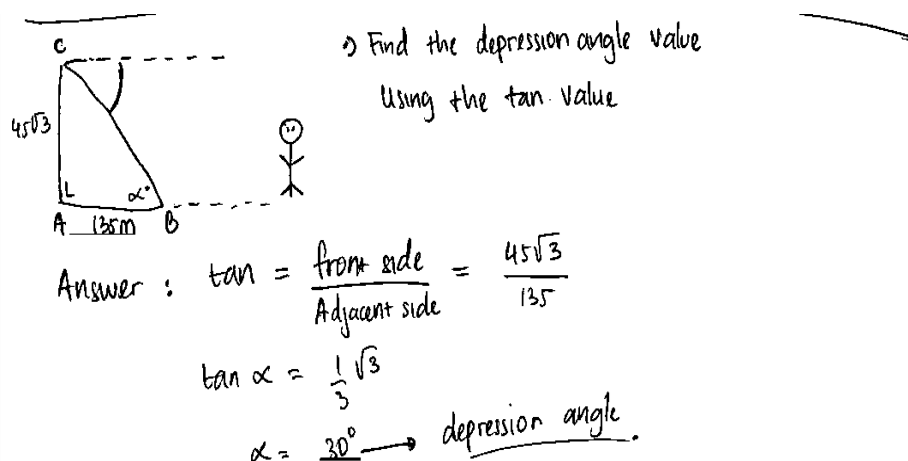 C
Find the depression angle value
Using the tan. value
45√3
α°
A 135m B
Answer : tan = front side / Adjacent side = 45√3 / 135
tan α = 1/3 √3
α = 30° → depression angle.